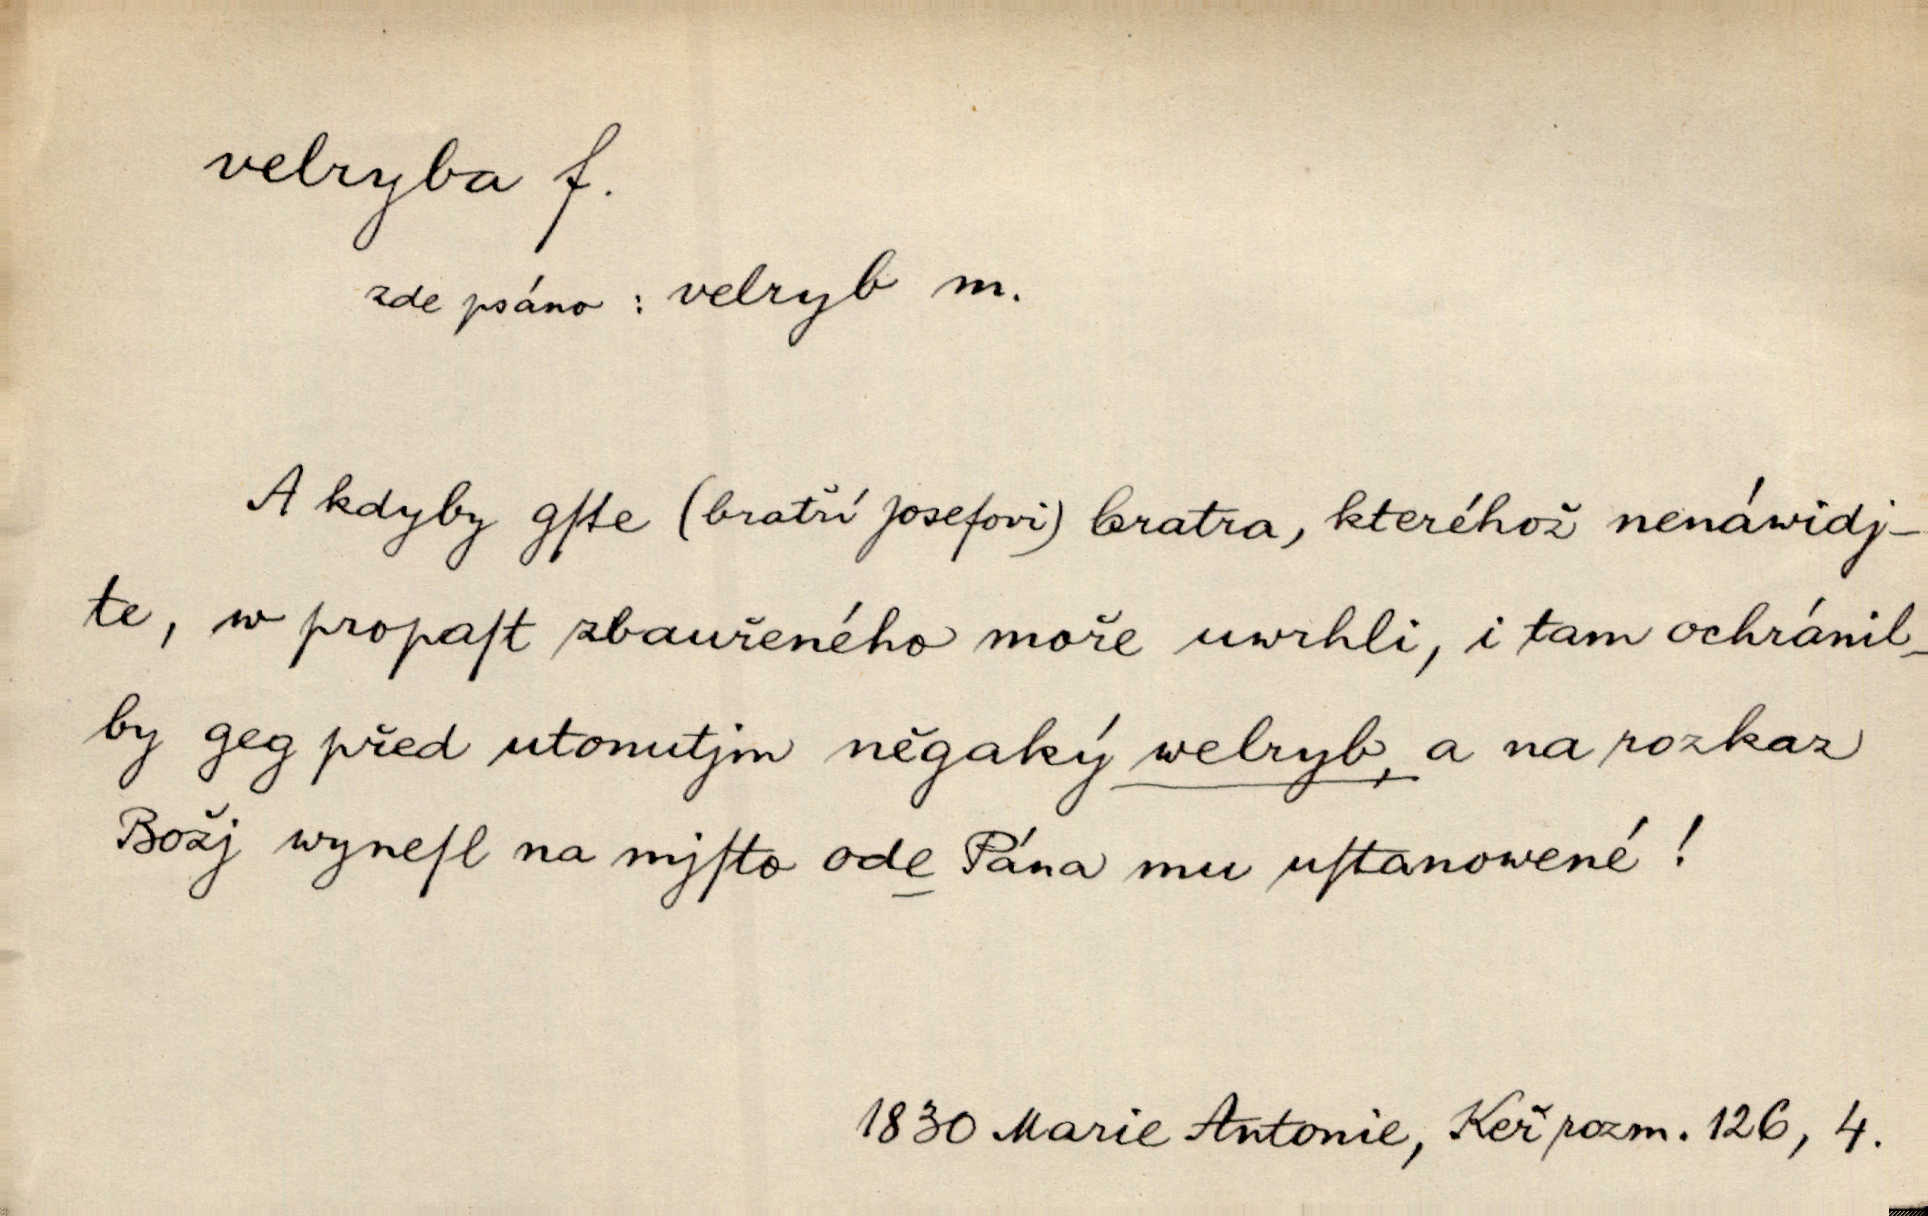 velryba f.
zde psáno : velryb m.
A kdyby gſte (bratří Josefovi) bratra, kteréhož nenáwidj-
te, w propaſt zbauřeného moře uwrhli, i tam ochránil-
by geg před utonutjm něgaký welryb, a na rozkaz
Božj wyneſl na mjſto ode Pána mu uſtanowené !
1830 Marie Antonie, Keř rozm. 126, 4.